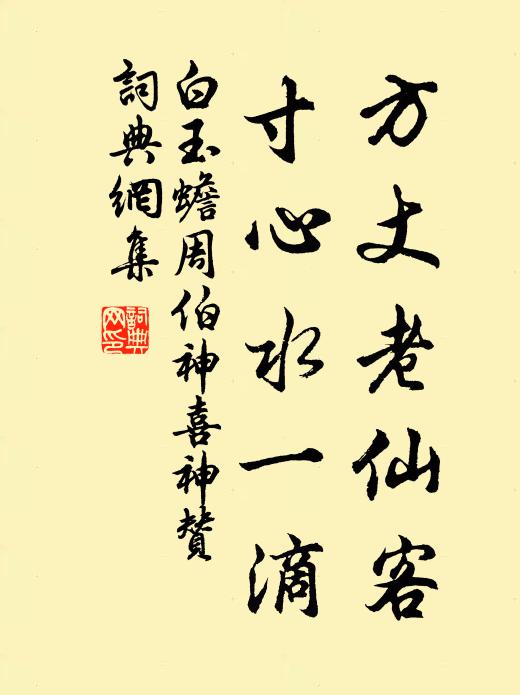 方丈老仙客
寸心水一滴
白玉蟾周伯神喜神赞
詞典網集
詞典
网印